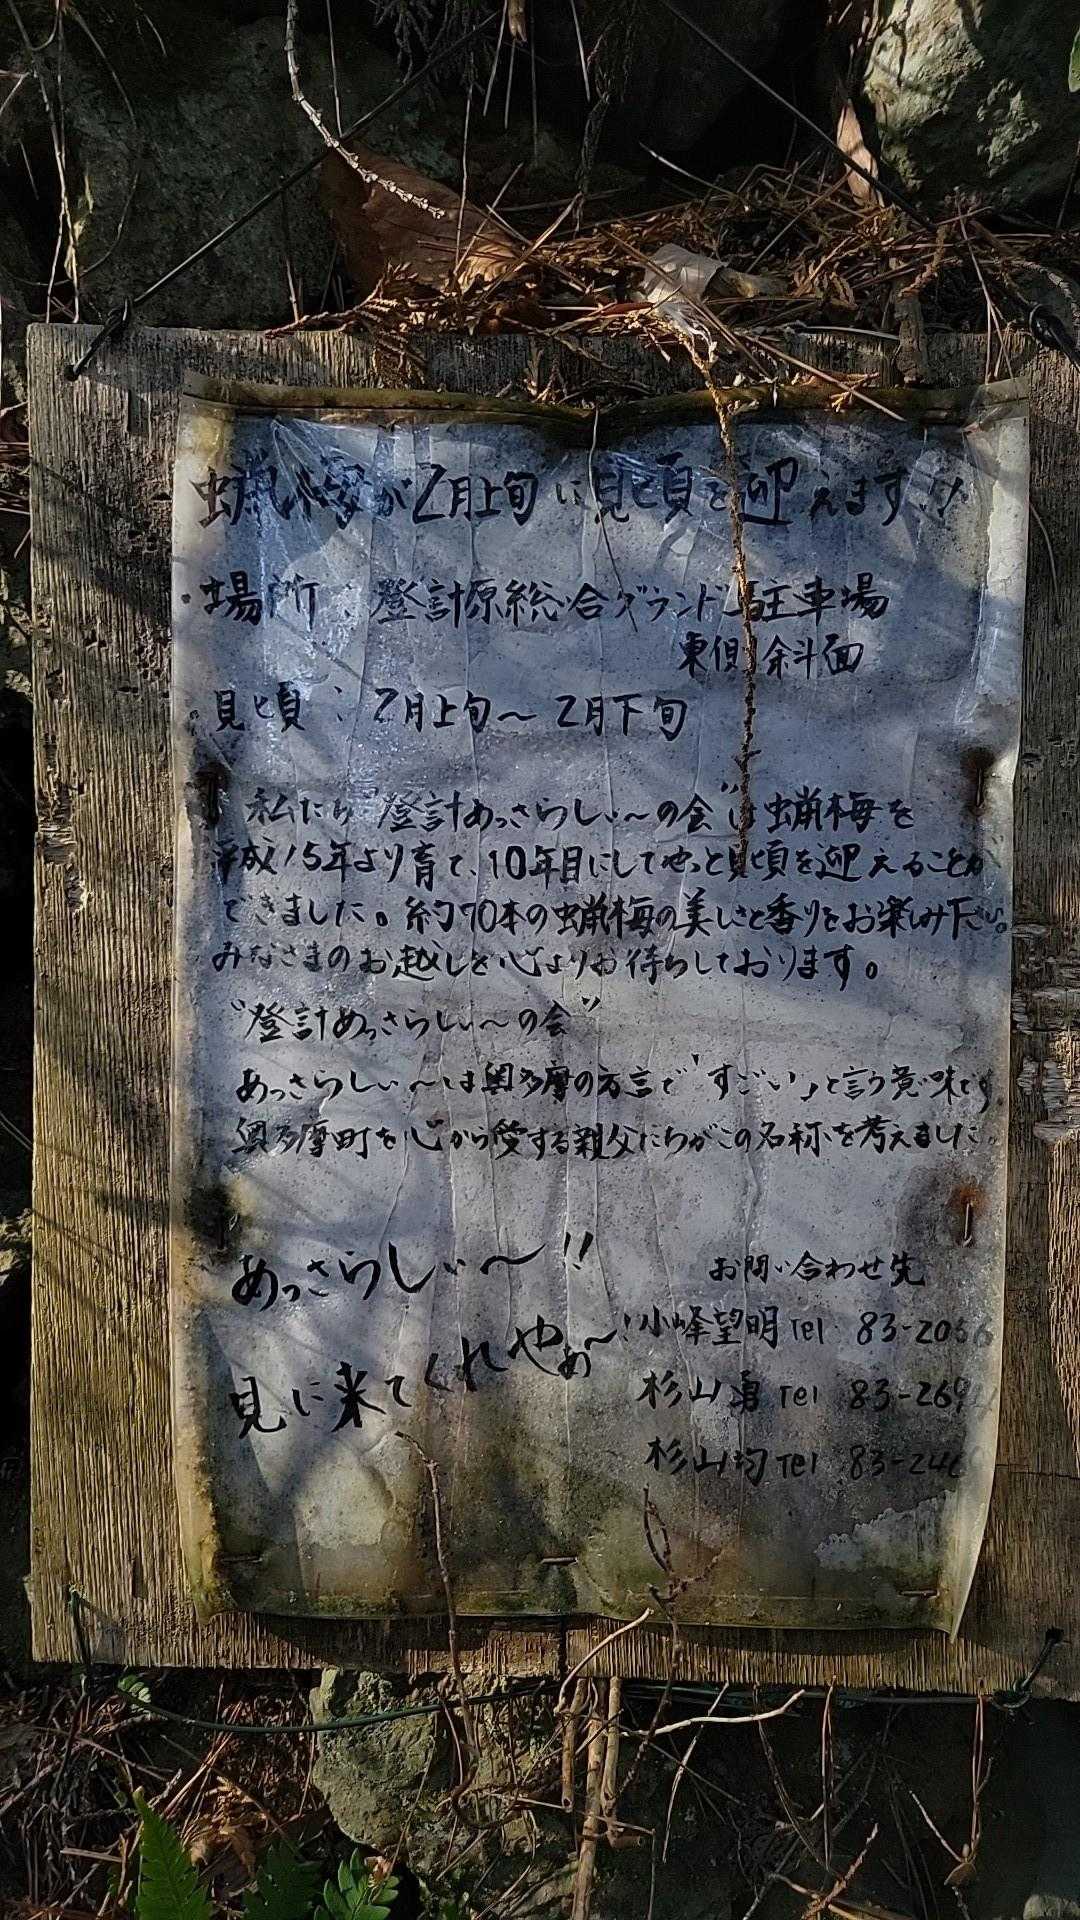 蝋梅が2月上旬に見ど頃を迎えます!!
・場所：登計原総合グランド駐車場
東側斜面
見ど頃：2月上旬〜2月下旬
私たち"登計あっさらしぃ〜の会"は蝋梅を
平成15年より育て、10年目にしてやっと見ど頃を迎えることが
できました。約70本の蝋梅の美しさと香りをお楽しみ下さい。
みなさまのお越しを心よりお待ちしております。
"登計あっさらしぃ〜の会"
あっさらしぃ〜は奥多摩の方言で「すごい」と言う意味です。
奥多摩町を心から愛する親父たちがこの名称を考えました。
あっさらしぃ〜!!
見に来てくれやぁ〜!
お問い合わせ先
小峰望明 Tel 83-20
杉山勇 Tel 83-269
杉山均 Tel 83-246